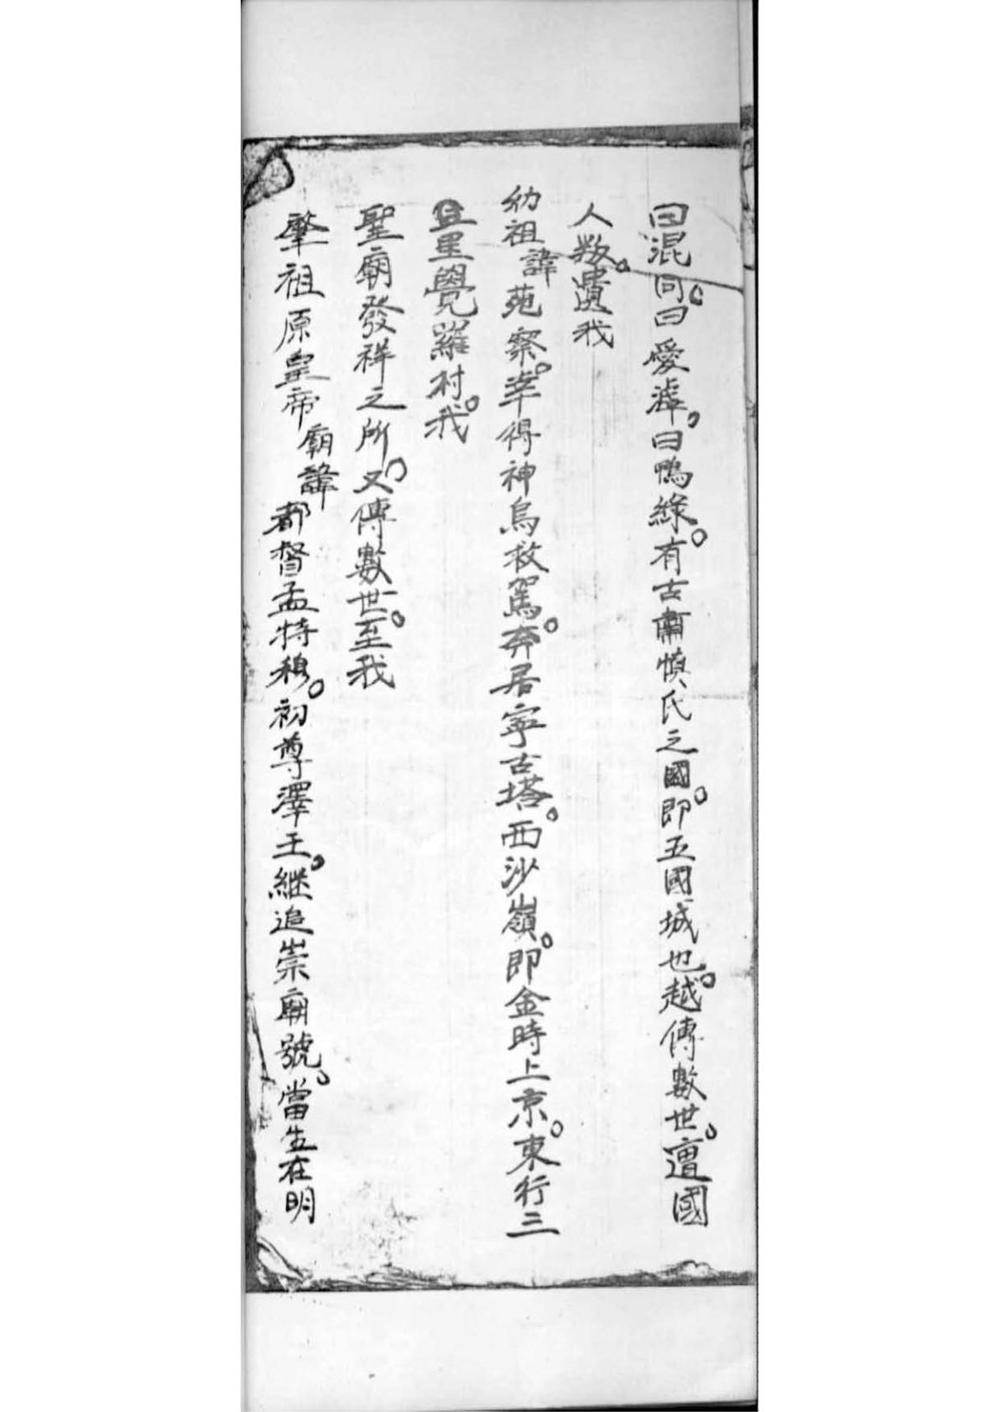 曰混同。曰愛滹。曰鴨綠。有古肅慎氏之國。即五國城也。越傳數世。遭國
人叛。遺我
幼祖諱苑察。幸得神烏救駕。奔居寧古塔。西沙嶺。即金時上京。東行三
里覺羅村。我
聖廟發祥之所。又傳數世。至我
肇祖原皇帝廟諱都督孟特穆。初尊澤王。繼追崇廟號。當生在明